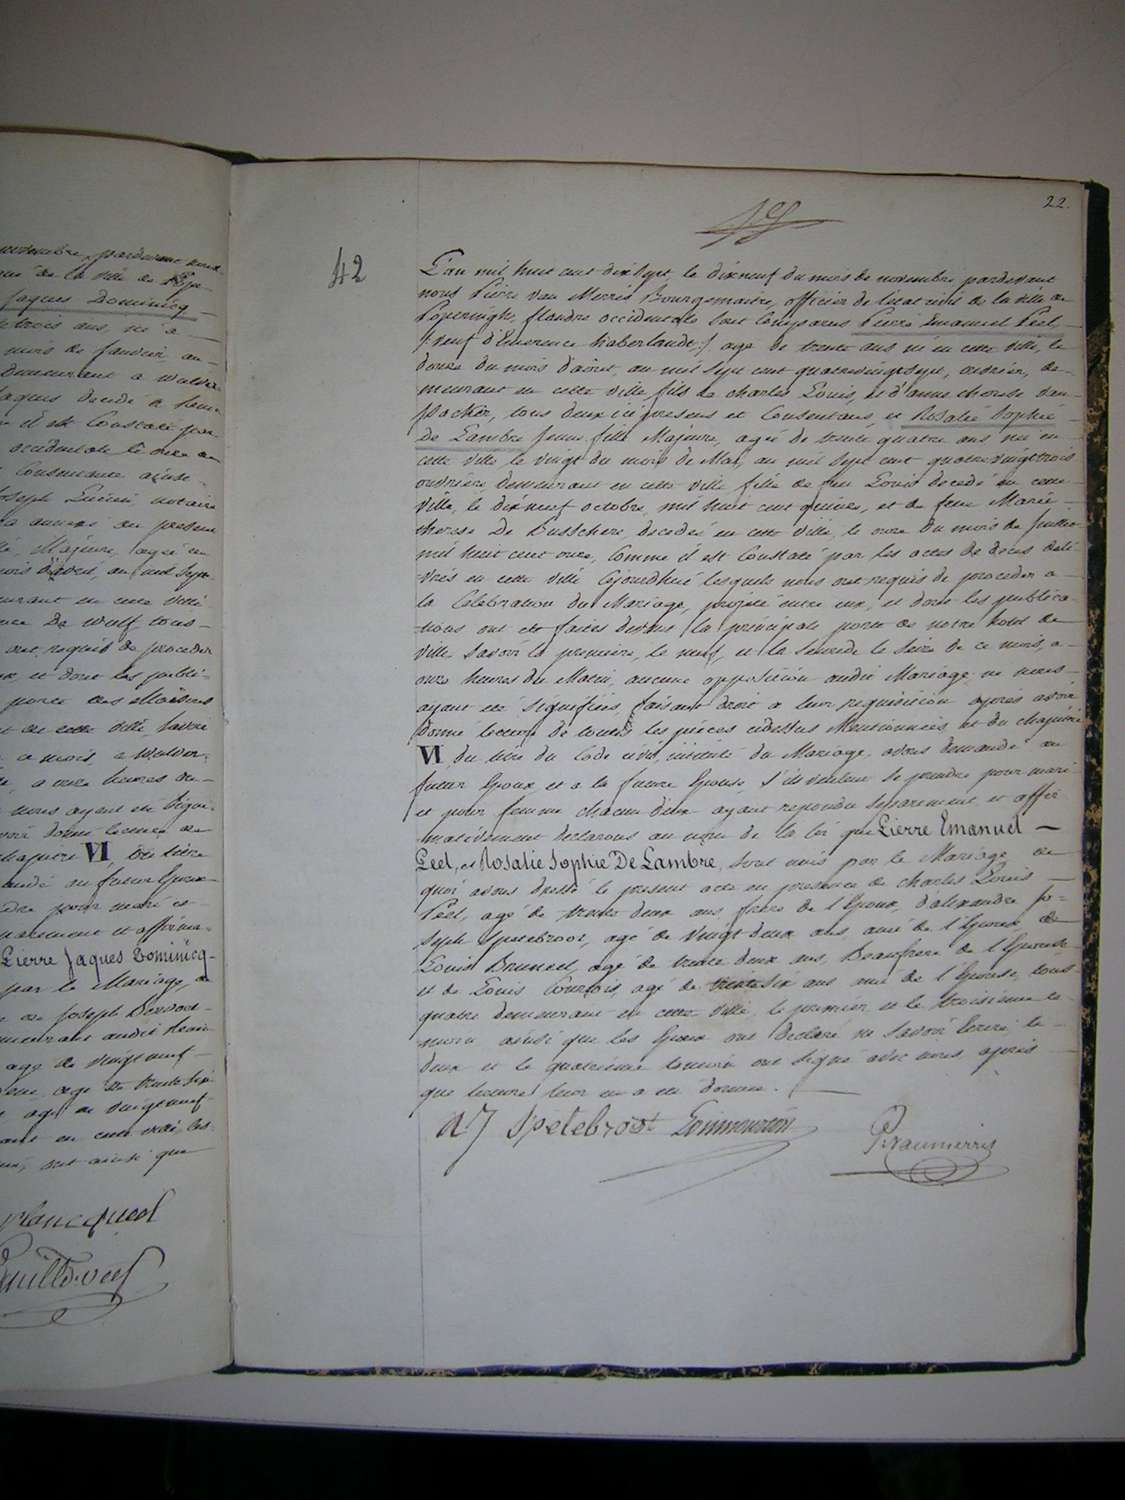 novembre, pardevant nous
de la ville de Pope-
Jaques Dominicq
trois ans, né a
mois de Janvier, an
demeurant a
Jaques decedé a
il est Constaté par
occidentale le
Consentante
Joseph notaire
a annexé au present
Majeure, agée de
mois d'avril, an mil sept
demeurant en cette ville
De Wulf, tous
ont requis de proceder
et dont les publi-
porte des Maisons
de cette ville, savoir
ce mois, a
a onze heures du
nous ayant eté signi-
donné lecture de
chapitre VI, du titre
demandé au futur Epoux
prendre pour mari et
separement et affirma-
Pierre Jaques Dominicq
par le Mariage, de
de Joseph
demeurant audit
agé de vingt neuf
agé de trente six
agé de vingt neuf
demeurant en cette ville, les
ainsi que
22.
42
L'an mil huit cent dix sept le dix neuf du mois de novembre pardevant
nous Pierre van Merris Bourgemaitre, officier de l'etat civil de la ville de
Poperinghe, flandre occidentale sont Comparus Pierre Emanuel Peel,
/:veuf d'Emerence haberlandt:/ agé de trente ans né en cette ville, le
douze du mois d'aout, an mil sept cent quatrevingt sept, ouvrier, de-
meurant en cette ville fils de charles Louis, et d'anne therese van-
pachen, tous deux ici presens et Consentans, et Rosalie Sophie
De Lambre Jeune fille Majeure, agée de trente quatre ans née en
cette ville le vingt du mois de Mai, an mil sept cent quatrevingt trois
ouvriere demeurant en cette ville fille de feu Louis decedé en cette
ville, le dix neuf octobre, mil huit cent quinze, et de feue Marie
therese De Busschere decedée en cette ville, le onze du mois de Juillet
mil huit cent onze, Comme il est Constaté par les actes de deces deli-
vrés en cette ville Cejourdhui lesquels nous ont requis de proceder a
la Celebration du Mariage, projeté entre eux, et dont les publica-
tions ont eté faites devant la principale porte de notre hotel de
ville Savoir la premiere, le neuf, et la seconde le seize de ce mois, a
onze heures du Matin, aucune opposition audit Mariage ne nous
ayant eté signifiée, faisant droit a leur requisition après avoir
donné lecture de toutes les pièces cidessus Mentionnées et du chapitre
VI du titre du Code civil, intitulé du Mariage, avons demandé au
futur Epoux et a la future Epouse, s'ils veulent se prendre pour mari
et pour femme chacun d'eux ayant repondu separement et affir-
mativement declarons au nom de la loi que Pierre Emanuel
Peel, et Rosalie Sophie De Lambre, sont unis par le Mariage de
quoi avons dressé le present acte en presence de charles Louis
Peel, agé de trente deux ans, frere de l'Epoux, d'alexandre Jo=
seph Spetebroot, agé de vingt deux ans, ami de l'Epoux, de
Louis Bruneel, agé de trente deux ans, Beaufrere de l'Epouse
et de Louis Courtois, agé de trente six ans ami de l'Epouse, tous
quatre demeurant en cette ville, le premier et le troisieme te-
moin ainsi que les Epoux ont declaré ne savoir Ecrire le
deux et le quatrieme temoin ont signé avec nous, après
que lecture leur en a eté donnée.
A J Spetebroot
PVanmerris